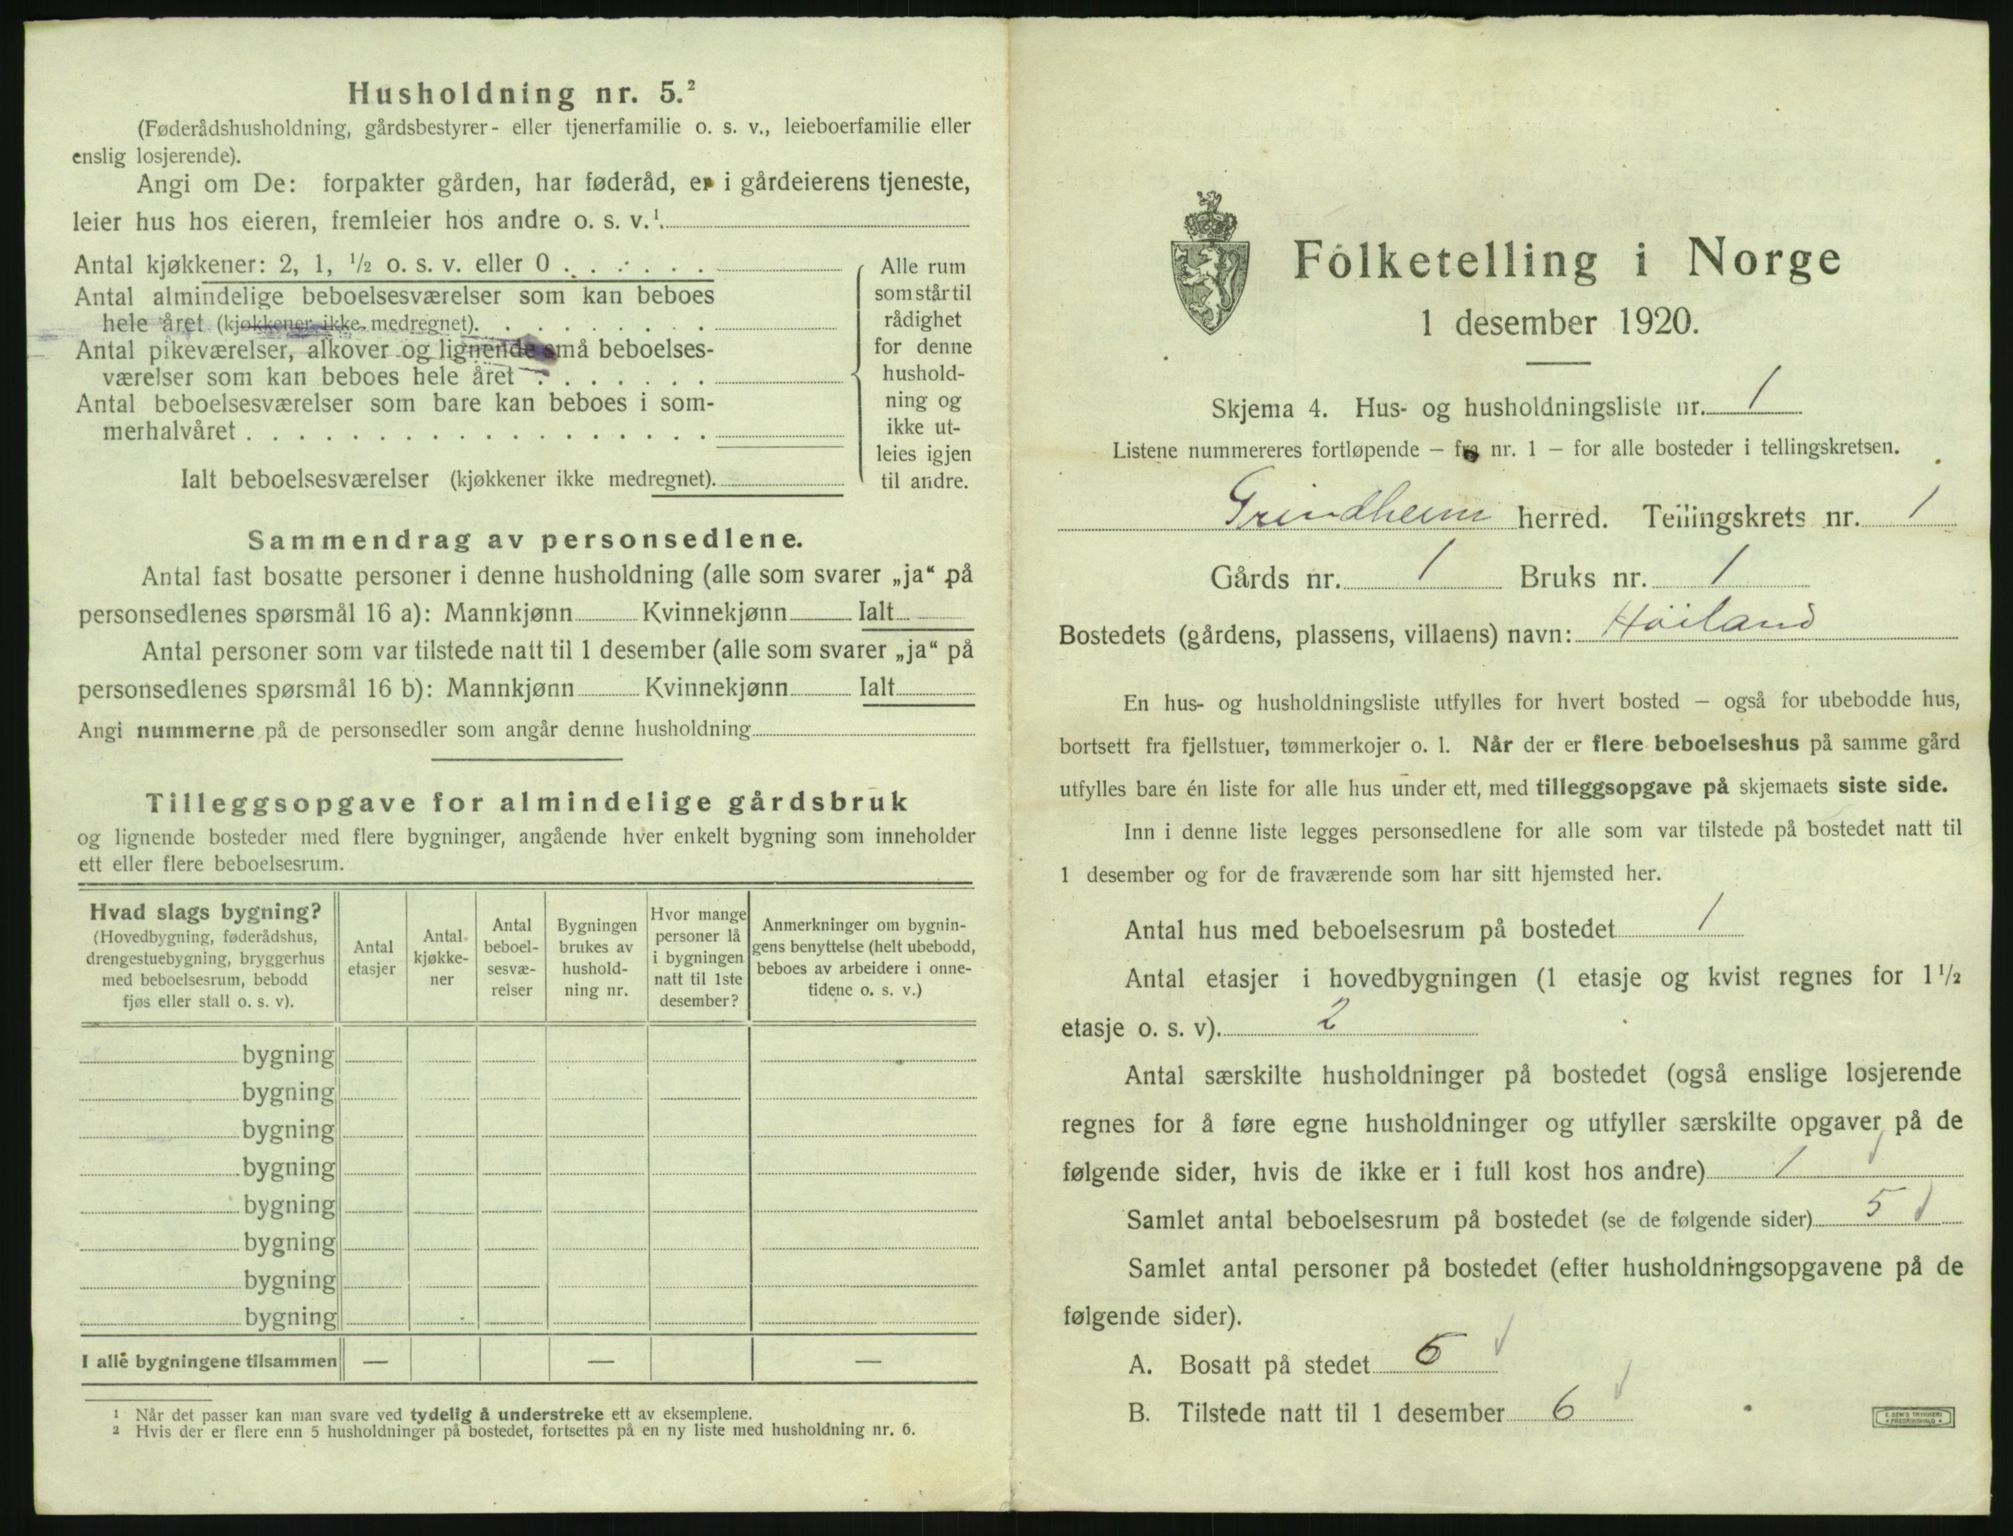 Husholdning nr. 5.²
(Føderådshusholdning, gårdsbestyrer- eller tjenerfamilie o. s. v., leieboerfamilie eller
enslig losjerende).
Angi om De: forpakter gården, har føderåd, er i gårdeierens tjeneste,
leier hus hos eieren, fremleier hos andre o. s. v.¹.
Antal kjøkkener: 2, 1, ½ o. s. v. eller 0 . . . . . .
Antal almindelige beboelsesværelser som kan beboes
hele året (kjøkkener ikke medregnet). . . . . . . . .
Antal pikeværelser, alkover og lignende små beboelses-
værelser som kan beboes hele året . . . . . . .
Antal beboelsesværelser som bare kan beboes i som-
merhalvåret . . . . . . . . . . . . . . . . . .
Ialt beboelsesværelser (kjøkkener ikke medregnet).
Alle rum
som står til
rådighet
for denne
hushold-
ning og
ikke ut-
leies igjen
til andre.
Sammendrag av personsedlene.
Antal fast bosatte personer i denne husholdning (alle som svarer „ja“ på
personsedlenes spørsmål 16 a): Mannkjønn Kvinnekjønn Ialt
Antal personer som var tilstede natt til 1 desember (alle som svarer „ja“ på
personsedlenes spørsmål 16 b): Mannkjønn Kvinnekjønn Ialt
Angi nummerne på de personsedler som angår denne husholdning
Tilleggsopgave for almindelige gårdsbruk
og lignende bosteder med flere bygninger, angående hver enkelt bygning som inneholder
ett eller flere beboelsesrum.
Hvad slags bygning?
(Hovedbygning, føderådshus,
drengestuebygning, bryggerhus
med beboelsesrum, bebodd
fjøs eller stall o. s. v).
Antal
etasjer
Antal
kjøkke-
ner
Antal
beboel-
sesvæ-
relser
Bygningen
brukes av
hushold-
ning nr.
Hvor mange
personer lå
i bygningen
natt til 1ste
desember?
Anmerkninger om bygnin-
gens benyttelse (helt ubebodd,
beboes av arbeidere i onne-
tidene o. s. v.)
bygning
bygning
bygning
bygning
bygning
bygning
bygning
bygning
I alle bygningene tilsammen — — —
¹ Når det passer kan man svare ved tydelig å understreke ett av eksemplene.
² Hvis der er flere enn 5 husholdninger på bostedet, fortsettes på en ny liste med husholdning nr. 6.
Folketelling i Norge
1 desember 1920.
Skjema 4. Hus- og husholdningsliste nr. 1
Listene nummereres fortløpende – fra nr. 1 – for alle bosteder i tellingskretsen.
Grindheim herred. Tellingskrets nr. 1
Gårds nr. 1 Bruks nr. 1
Bostedets (gårdens, plassens, villaens) navn: Høiland
En hus- og husholdningsliste utfylles for hvert bosted – også for ubebodde hus,
bortsett fra fjellstuer, tømmerkojer o. l. Når der er flere beboelseshus på samme gård
utfylles bare én liste for alle hus under ett, med tilleggsopgave på skjemaets siste side.
Inn i denne liste legges personsedlene for alle som var tilstede på bostedet natt til
1 desember og for de fraværende som har sitt hjemsted her.
Antal hus med beboelsesrum på bostedet 1
Antal etasjer i hovedbygningen (1 etasje og kvist regnes for 1½
etasje o. s. v). 2
Antal særskilte husholdninger på bostedet (også enslige losjerende
regnes for å føre egne husholdninger og utfyller særskilte opgaver på de
følgende sider, hvis de ikke er i full kost hos andre) 1
Samlet antal beboelsesrum på bostedet (se de følgende sider) 5
Samlet antal personer på bostedet (efter husholdningsopgavene på de
følgende sider).
A. Bosatt på stedet 6
B. Tilstede natt til 1 desember 6